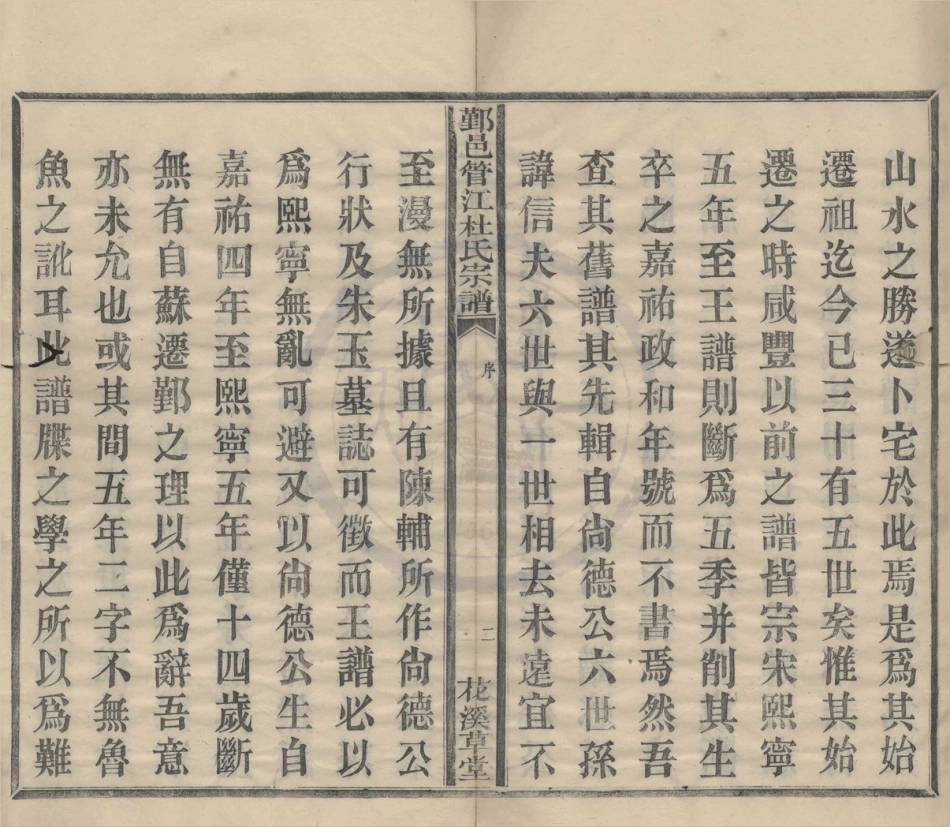 山水之勝遂卜宅於此焉是爲其始
遷祖迄今已三十有五世矣惟其始
遷之時咸豐以前之譜皆宗宋熙寧
五年至王譜則斷爲五季并削其生
卒之嘉祐政和年號而不書焉然吾
查其舊譜其先輯自尙德公六世孫
諱信夫六世與一世相去未遠宜不
鄞邑管江杜氏宗譜
序
二
花溪草堂
至漫無所據且有陳輔所作尙德公
行狀及朱玉墓誌可徵而王譜必以
爲熙寧無亂可避又以尙德公生自
嘉祐四年至熙寧五年僅十四歲斷
無有自蘇遷鄞之理以此爲辭吾意
亦未允也或其間五年二字不無魯
魚之訛耳此譜牒之學之所以爲難